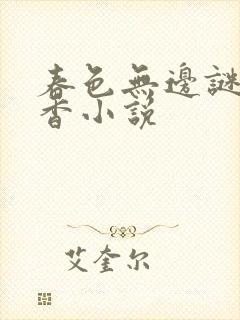 春色無邊謎
香小說
艾奎尔